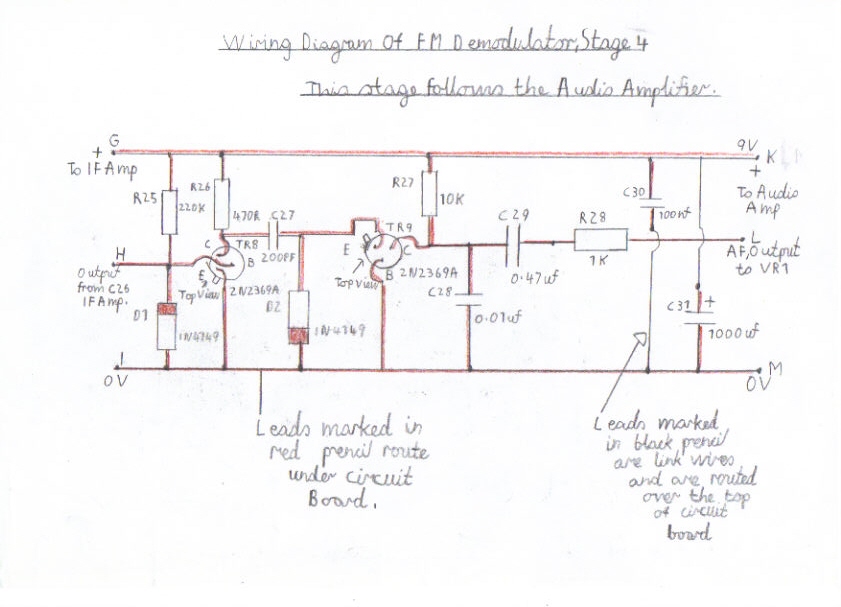 Wiring Diagram Of FM Demodulator, Stage 4
This stage follows the Audio Amplifier.
G
+ To IF Amp
R25
220K
R26
470R
C27
200PF
R27
10K
C29
0.47uf
R28
1K
C30
100nf
9V
K
+
To Audio
Amp
L
AF, Output
to VR1
H
Output
from C26
IF Amp.
C
TR8
B
E
Top View
2N2369A
E
TR9
C
B
Top View
2N2369A
D1
1N4249
D2
1N4249
C28
0.01uf
C31
+
1000uf
I
0V
M
0V
Leads marked in
red pencil route
under circuit
Board.
Leads marked
in black pencil
are link wires
and are routed
over the top
of circuit
board